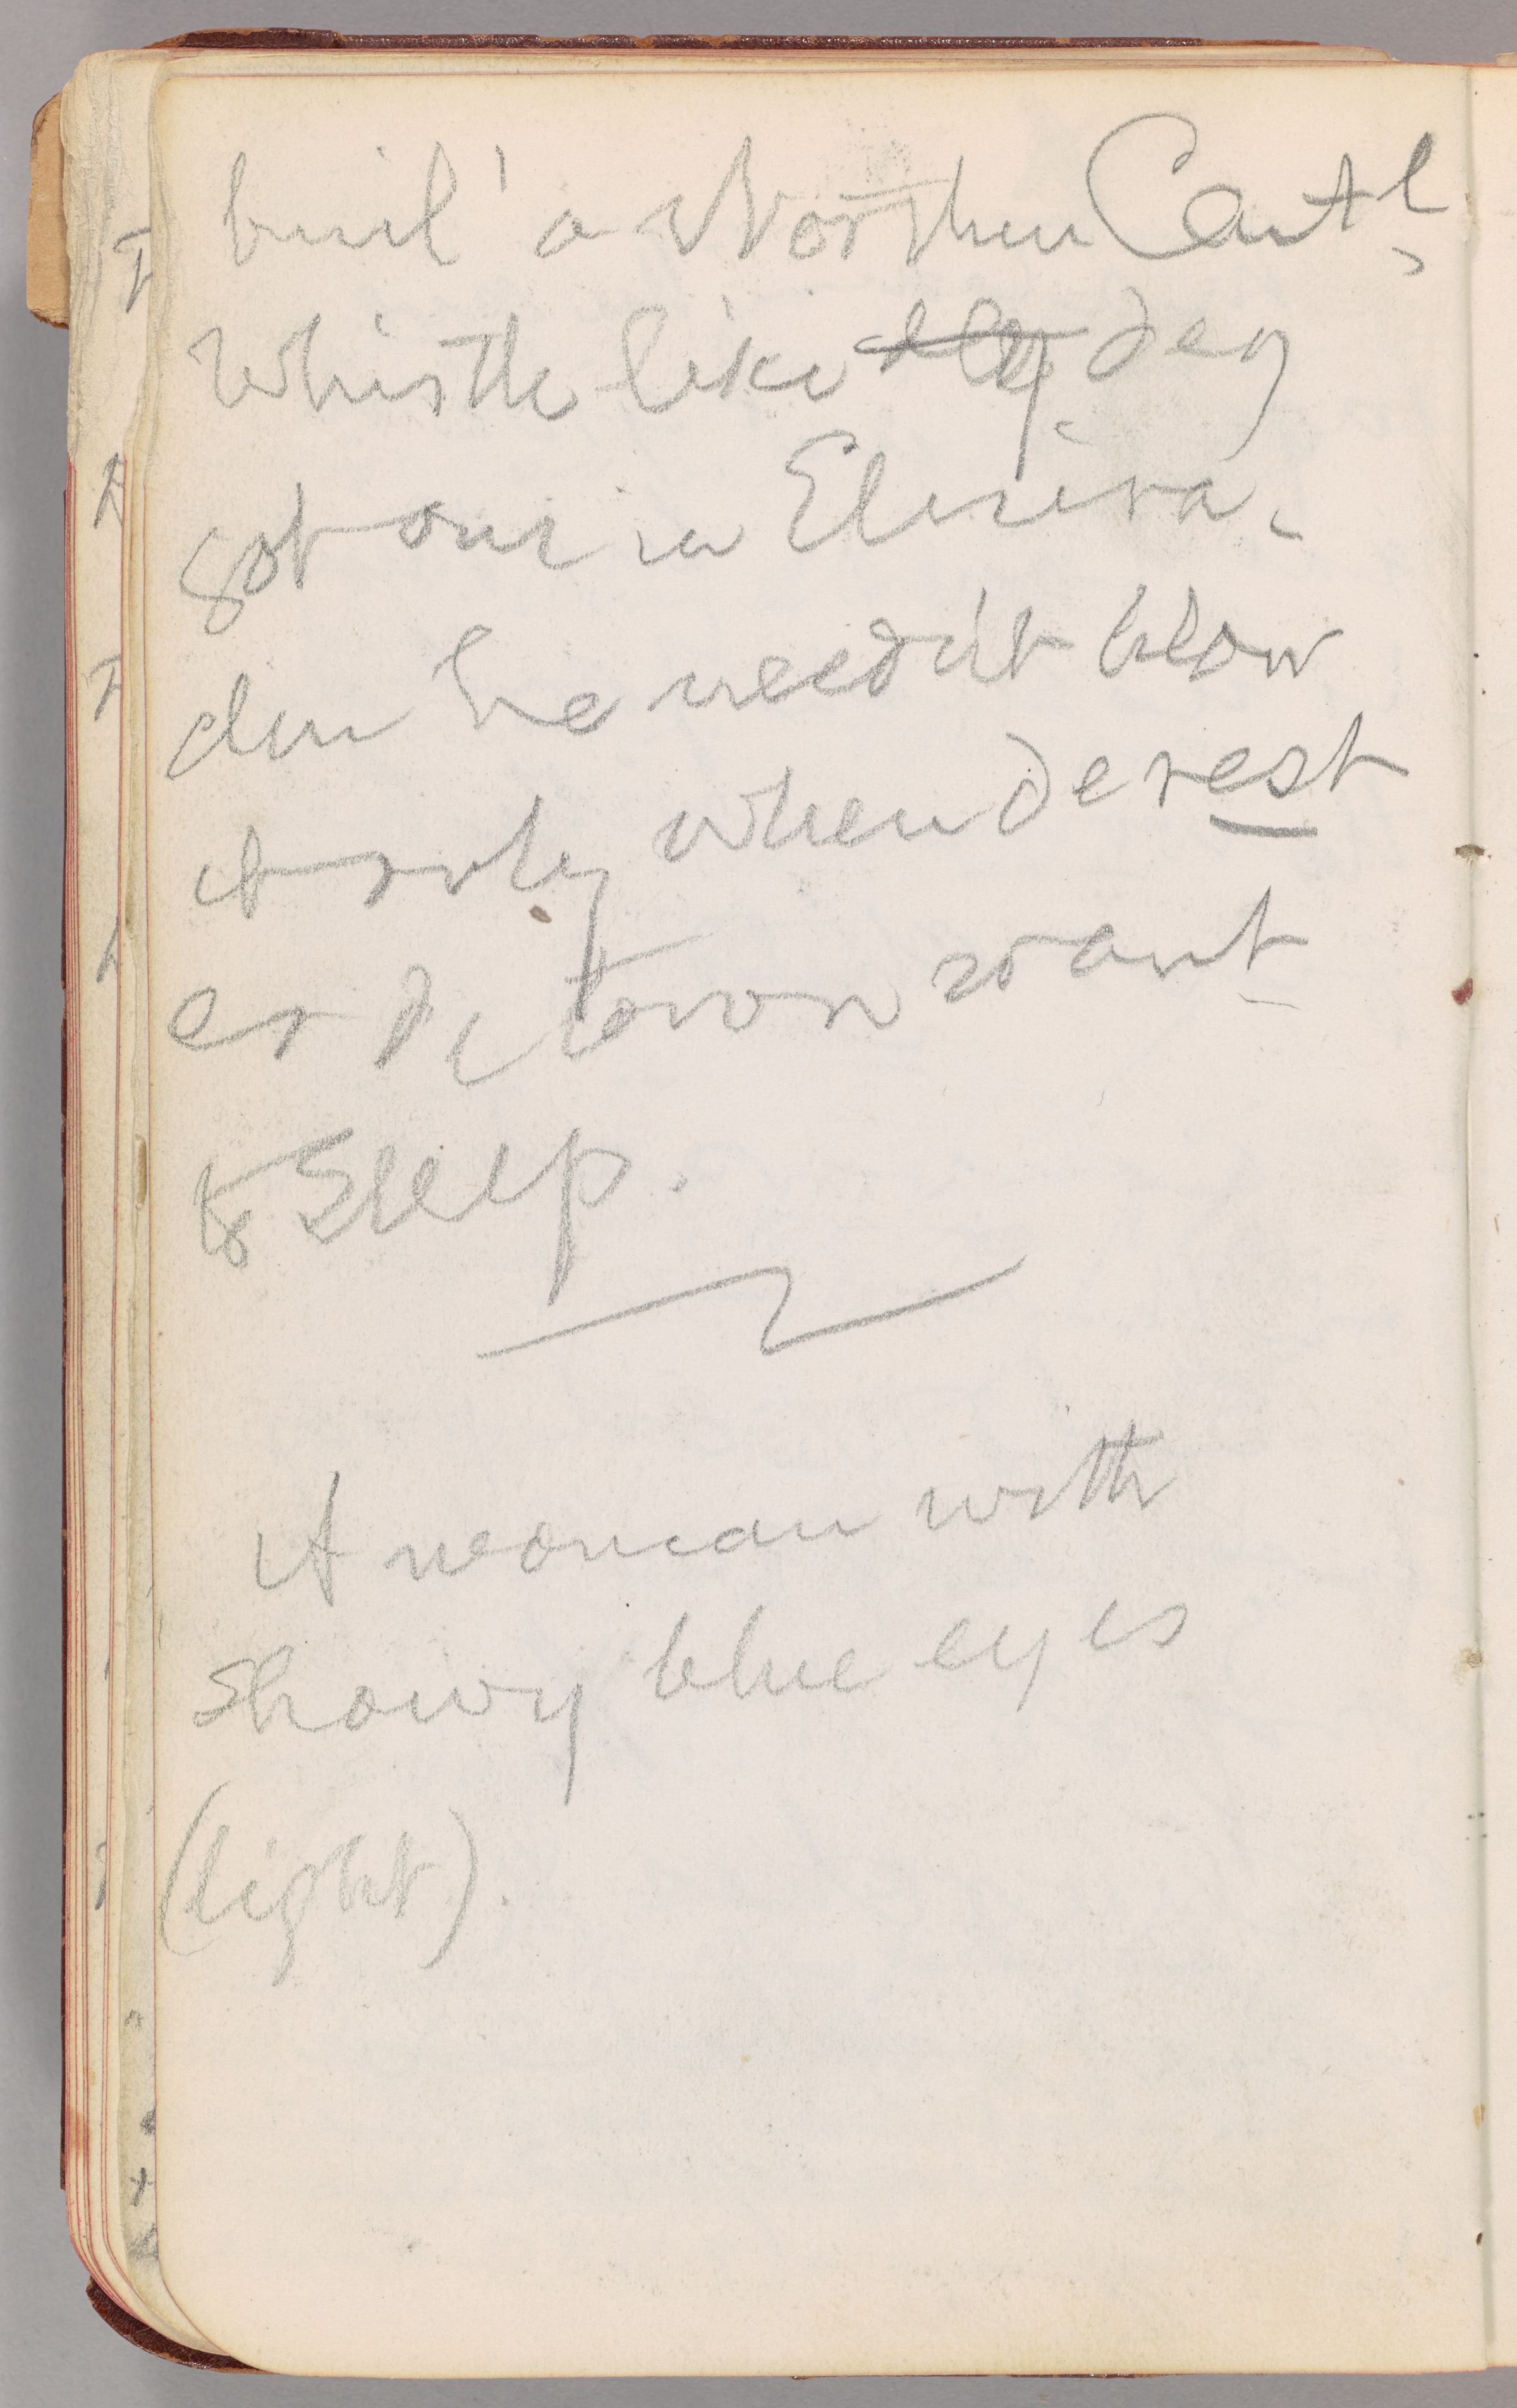 buil' a Northern Centl
Whistle like dey dey
got one in Elmira,
den he needn't blow
it only when de rest
er de town want
to sleep.
A woman with
showy blue eyes
(light).